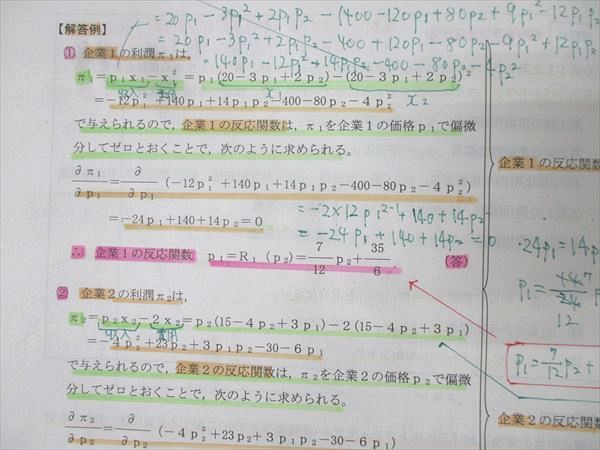 = 20p₁ - 3p₁² + 2p₁p₂ - (400 - 120p₁ + 80p₂ + 9p₁² - 12p₁p₂
= 20p₁ - 3p₁² + 2p₁p₂ - 400 + 120p₁ - 80p₂ - 9p₁² + 12p₁p₂
= 140p₁ - 12p₁² + 14p₁p₂ - 400 - 80p₂ - 4p₂²
【解答例】
① 企業1の利潤π₁は，
π₁＝p₁x₁－x₁²＝p₁(20－3p₁＋2p₂)－(20－3p₁＋2p₂)²
収入 費用 x₁ x₂
＝－12p₁²＋140p₁＋14p₁p₂－400－80p₂－4p₂²
で与えられるので，企業1の反応関数は，π₁を企業1の価格p₁で偏微
分してゼロとおくことで，次のように求められる。
∂π₁/∂p₁＝∂/∂p₁(－12p₁²＋140p₁＋14p₁p₂－400－80p₂－4p₂²)
= -2×12p₁²⁻¹ + 140 + 14p₂
＝－24p₁＋140＋14p₂＝0
= -24p₁ + 140 + 14p₂ = 0
∴ 企業1の反応関数 p₁＝R₁(p₂)＝7/12 p₂＋35/6 (答)
② 企業2の利潤π₂は，
π₂＝p₂x₂－2x₂＝p₂(15－4p₂＋3p₁)－2(15－4p₂＋3p₁)
収入 費用
＝－4p₂²＋23p₂＋3p₁p₂－30－6p₁
で与えられるので，企業2の反応関数は，π₂を企業2の価格p₂で偏微
分してゼロとおくことで，次のように求められる。
∂π₂/∂p₂＝∂/∂p₂(－4p₂²＋23p₂＋3p₁p₂－30－6p₁)
企業1の反応関
24p₁ = 14p
p₁ = 7/12 p₂ +
企業2の反応関